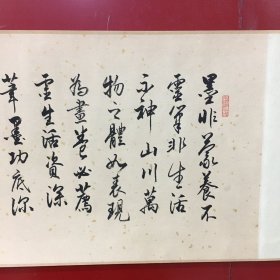 墨非蒙養不
靈筆非生活
不神山川萬
物之體如表現
為畫卷必薦
靈生活資深
筆墨功底深